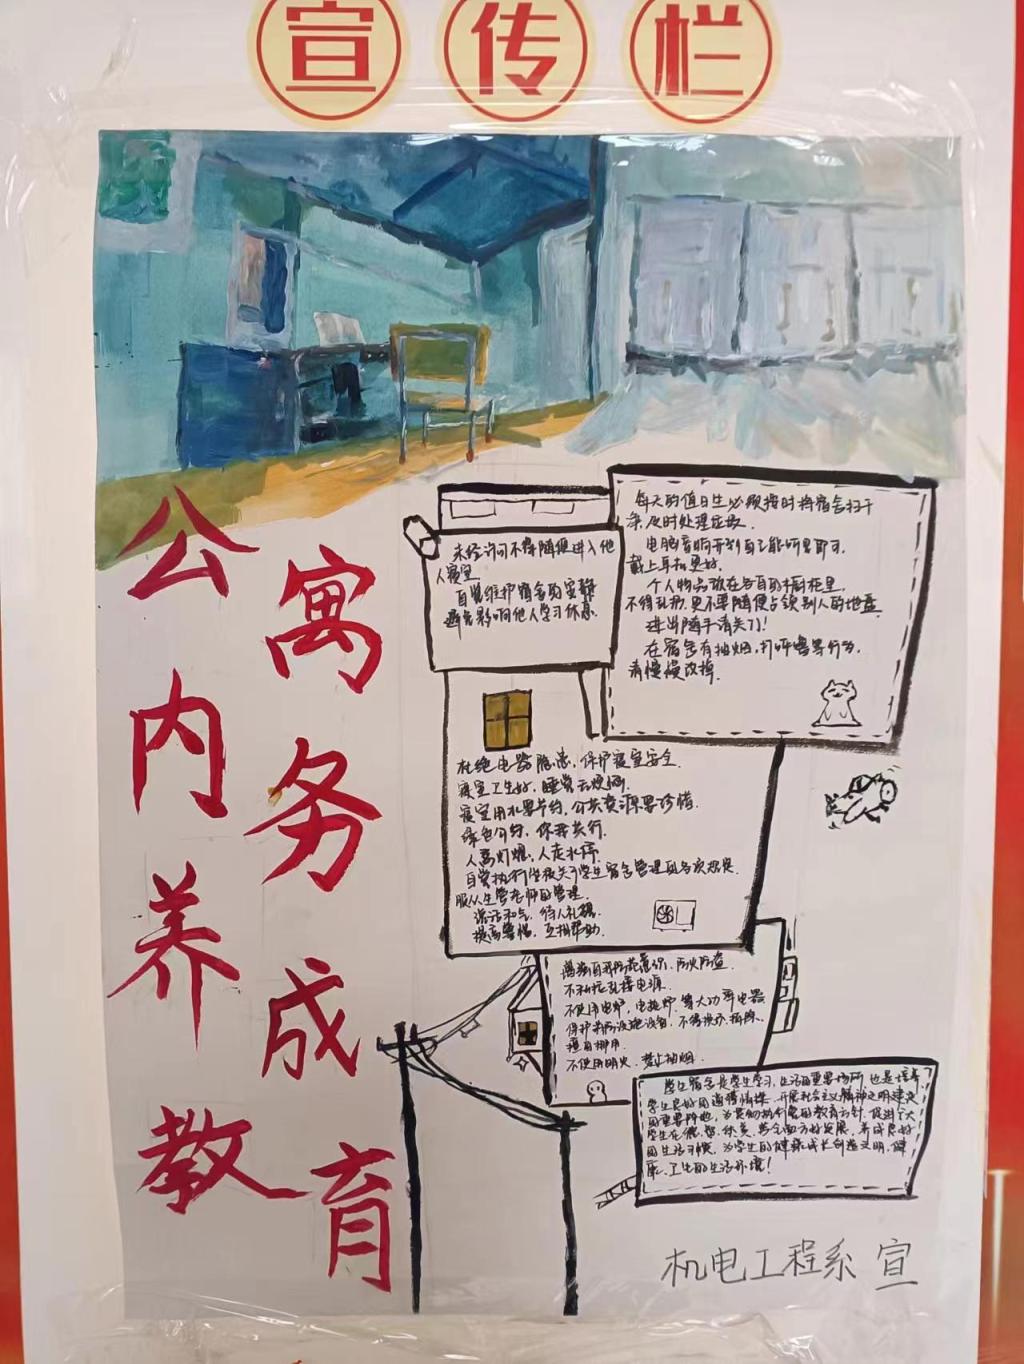 宣传栏
公寓内务养成教育
未经许可不得随便进入他
人寝室
自觉维护宿舍的安静
避免影响他人学习休息.
每天的值日生必须按时将宿舍扫干
净,及时处理垃圾.
电脑音响开到自己能听见即可.
戴上耳机更好.
个人物品放在各自的橱柜里,
不得乱扔,更不要随便占领别人的地盘
进出随手请关门!
在宿舍有抽烟,打呼噜等行为,
请慢慢改掉.
杜绝电器隐患,保护寝室安全.
寝室卫生好,睡觉无烦恼.
寝室用水要节约,公共资源要珍惜.
绿色公约,你我共行.
人离灯熄,人走水停.
自觉执行学校关于学生宿舍管理的各项规定
服从生管老师的管理.
说话和气,待人礼貌.
提高警惕,互相帮助.
增强自我防范意识,防火防盗.
不私拉乱接电源.
不使用电炉,电热炉,等大功率电器
保护消防设施设备,不得损坏,拆除,
擅自挪用.
不使用明火,禁止抽烟.
学生宿舍是学生学习,生活的重要场所,也是培养
学生良好的道德情操,开展社会主义精神文明建设
的重要阵地,为贯彻执行党的教育方针,促进广大
学生在德、智、体、美等全面方面发展,养成良好
的生活习惯,为学生的健康成长创造文明、健
康、卫生的生活环境!
机电工程系 宣